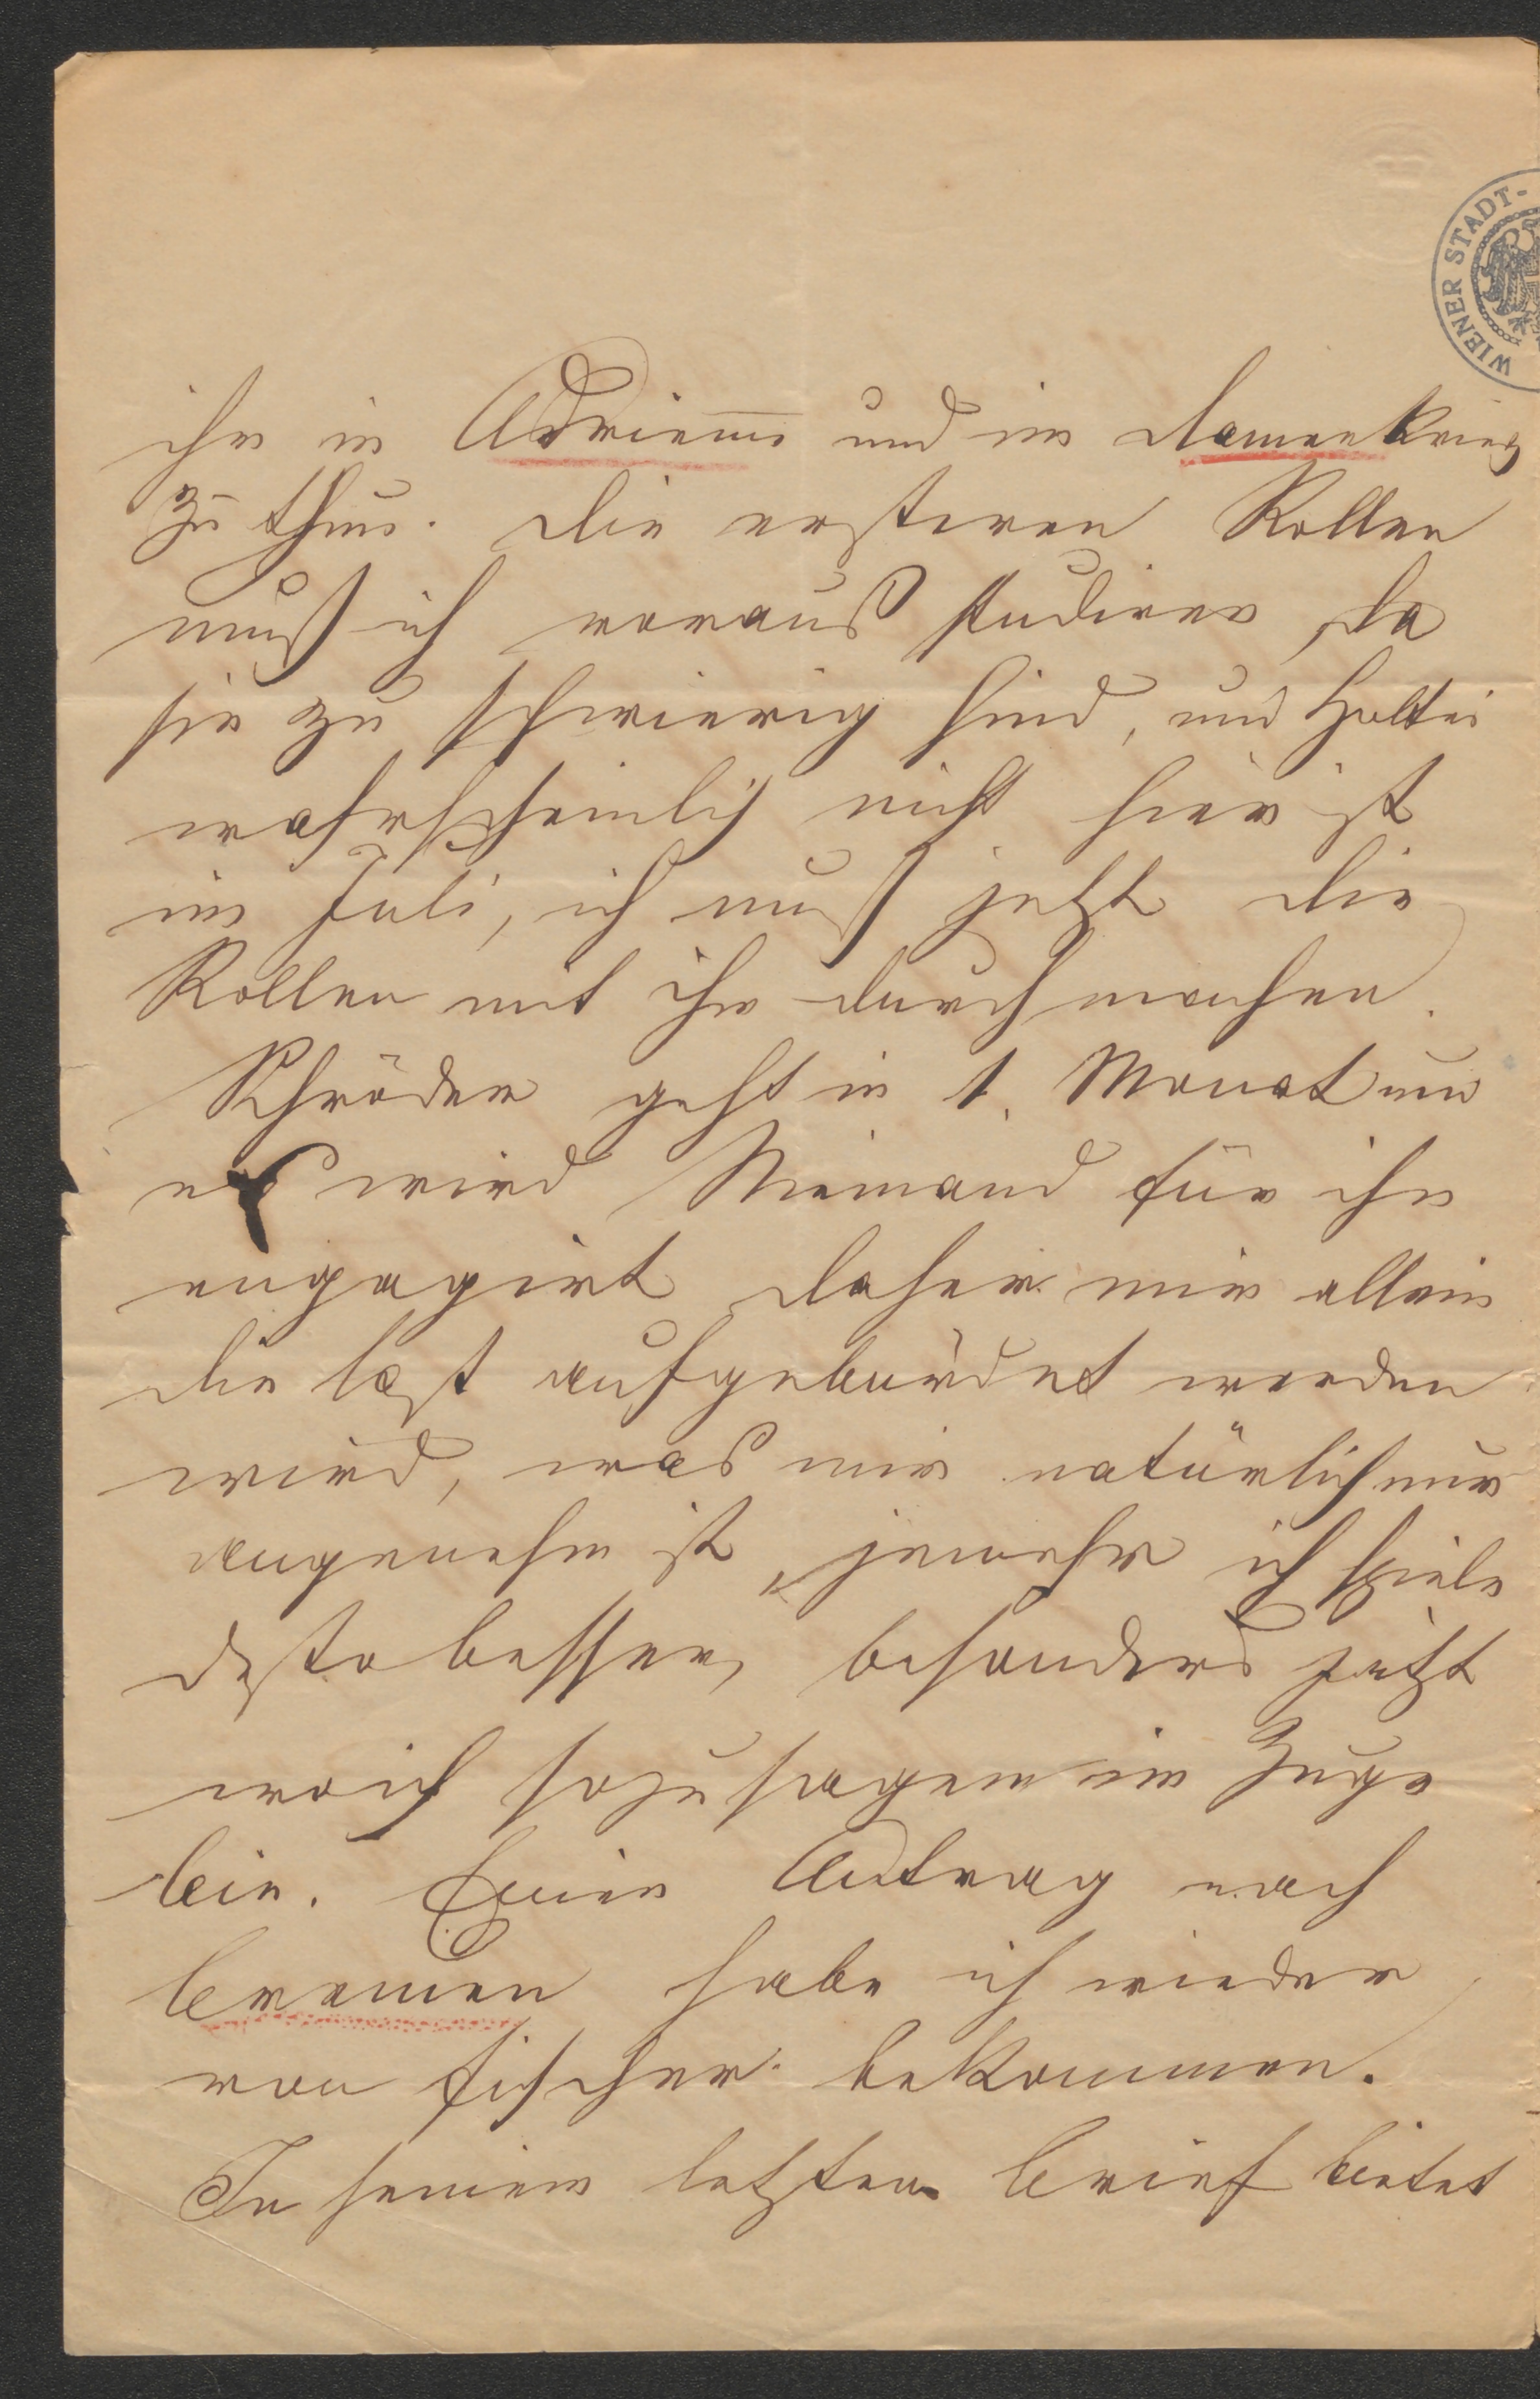 WIENER STADT-
ihr in Adrienne und im Damenkrieg
zu thun. Die ersteren Rollen
muß ich voraus studiren, da
sie zu schwierig sind, und Holtei
wahrscheinlich nicht hier ist
im Juli, ich muß jetzt die
Rollen mit ihr durchmachen.
Schröder geht in 1. Monat und
es wird Niemand für ihn
engagirt daher mir allein
die Last aufgebürdet werden
wird, was mir natürlich nur
angenehm ist, jemehr ich spiele
desto besser, besonders jetzt
wo ich sozusagen im Zuge
bin. Einen Antrag nach
Bremen habe ich wieder
von Fischer bekommen.
In seinem letzten Brief bietet